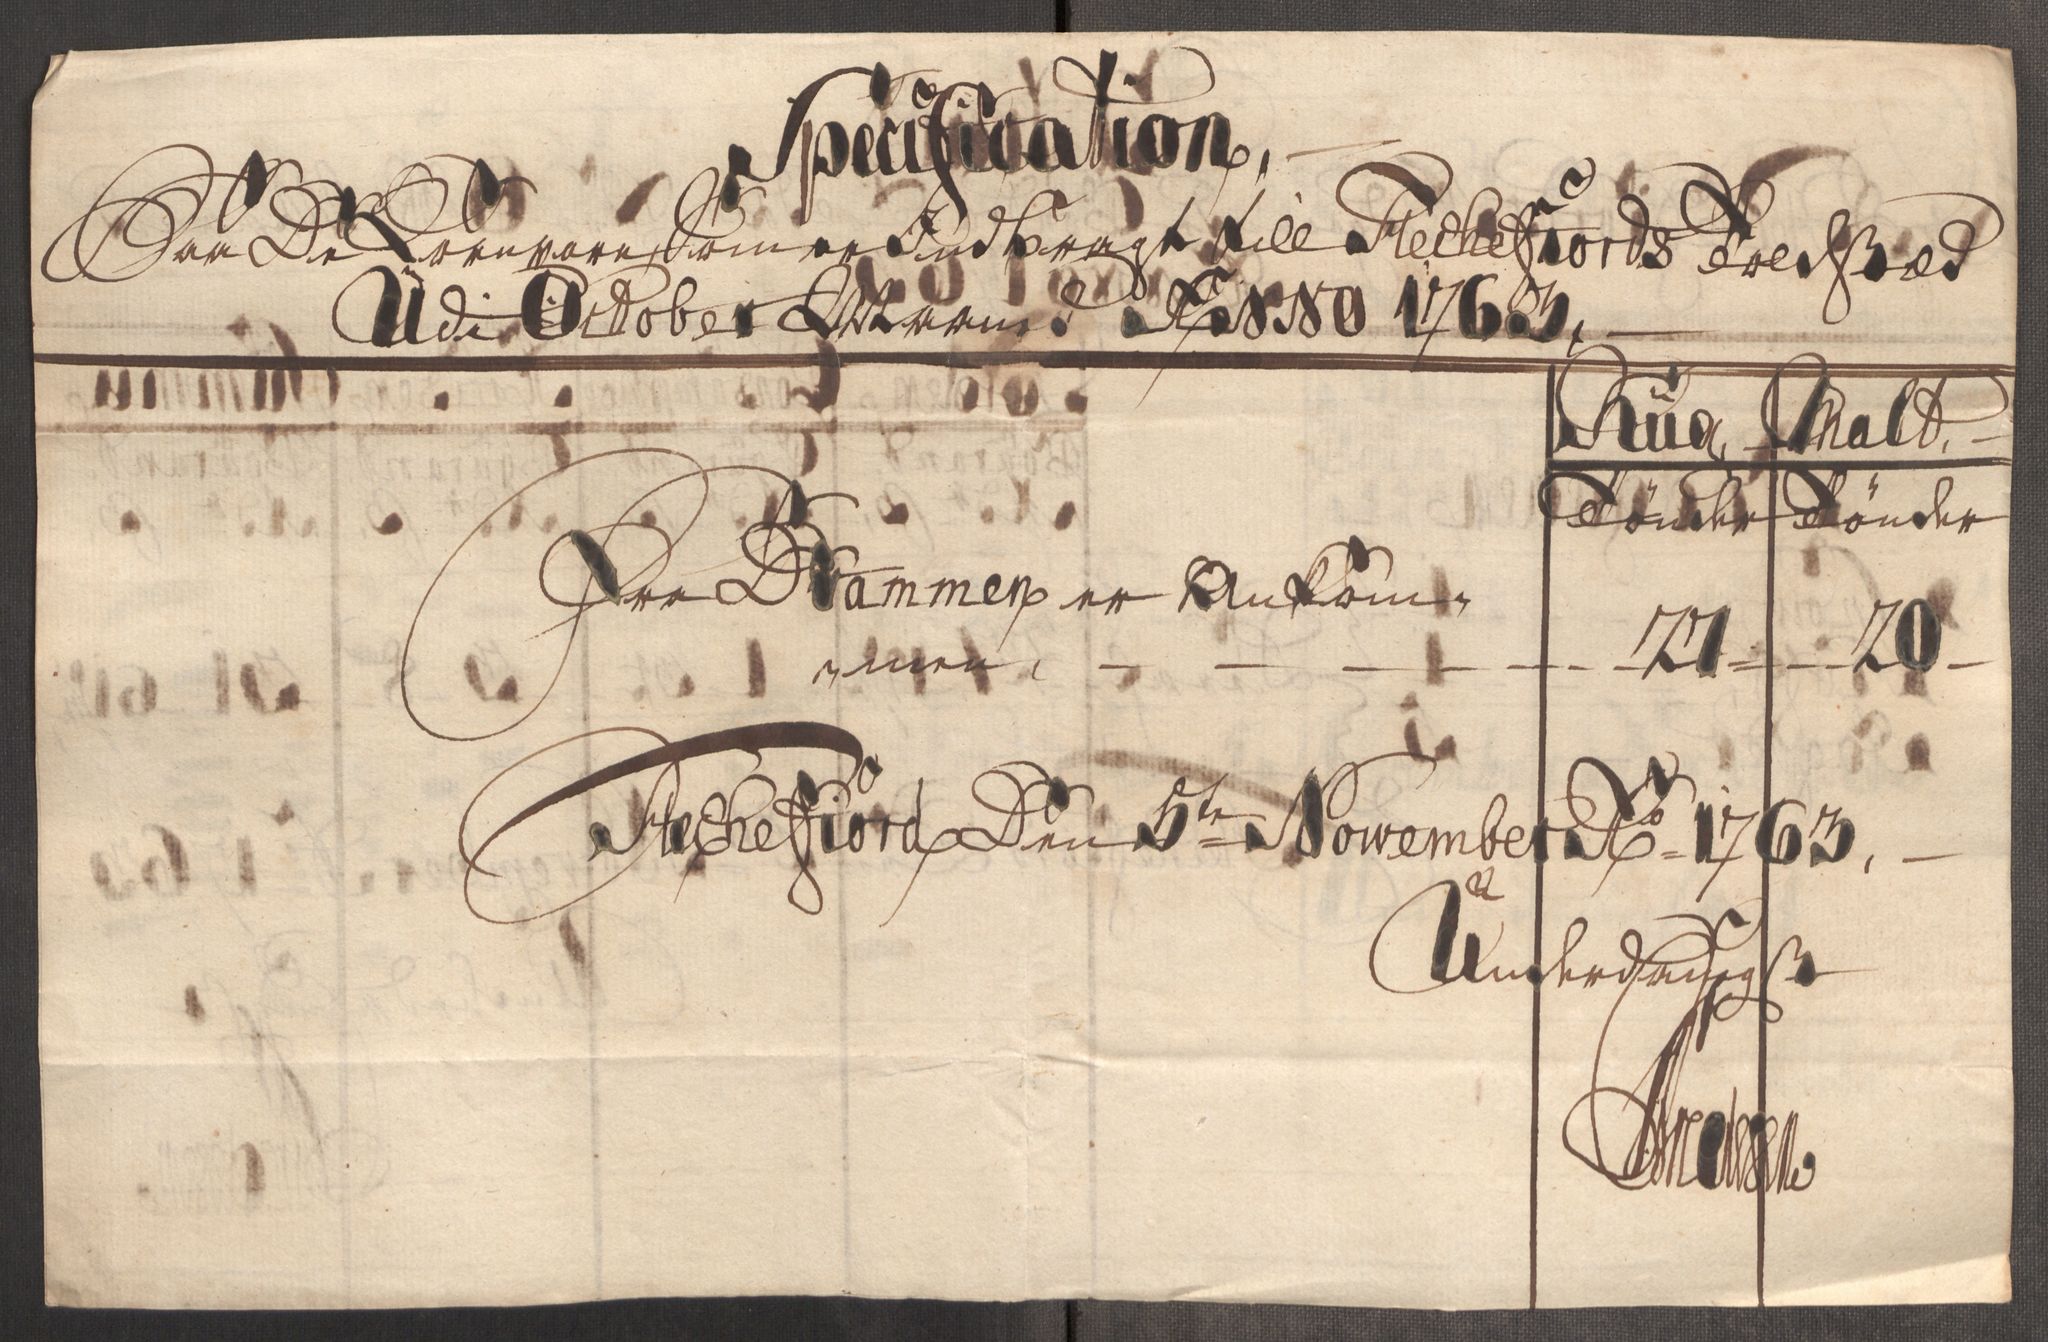 Specification,
Paa De Kornvare, som er Indbragt till Flechefiords Tredstæd
Udi October Maaned Anno 1763,
Rüg, Malt,
Tönder Tönder
Fra Drammen er Ankom-
men, 121 20
Flechefiord Den 5te November Ao 1763,
Underdanigst